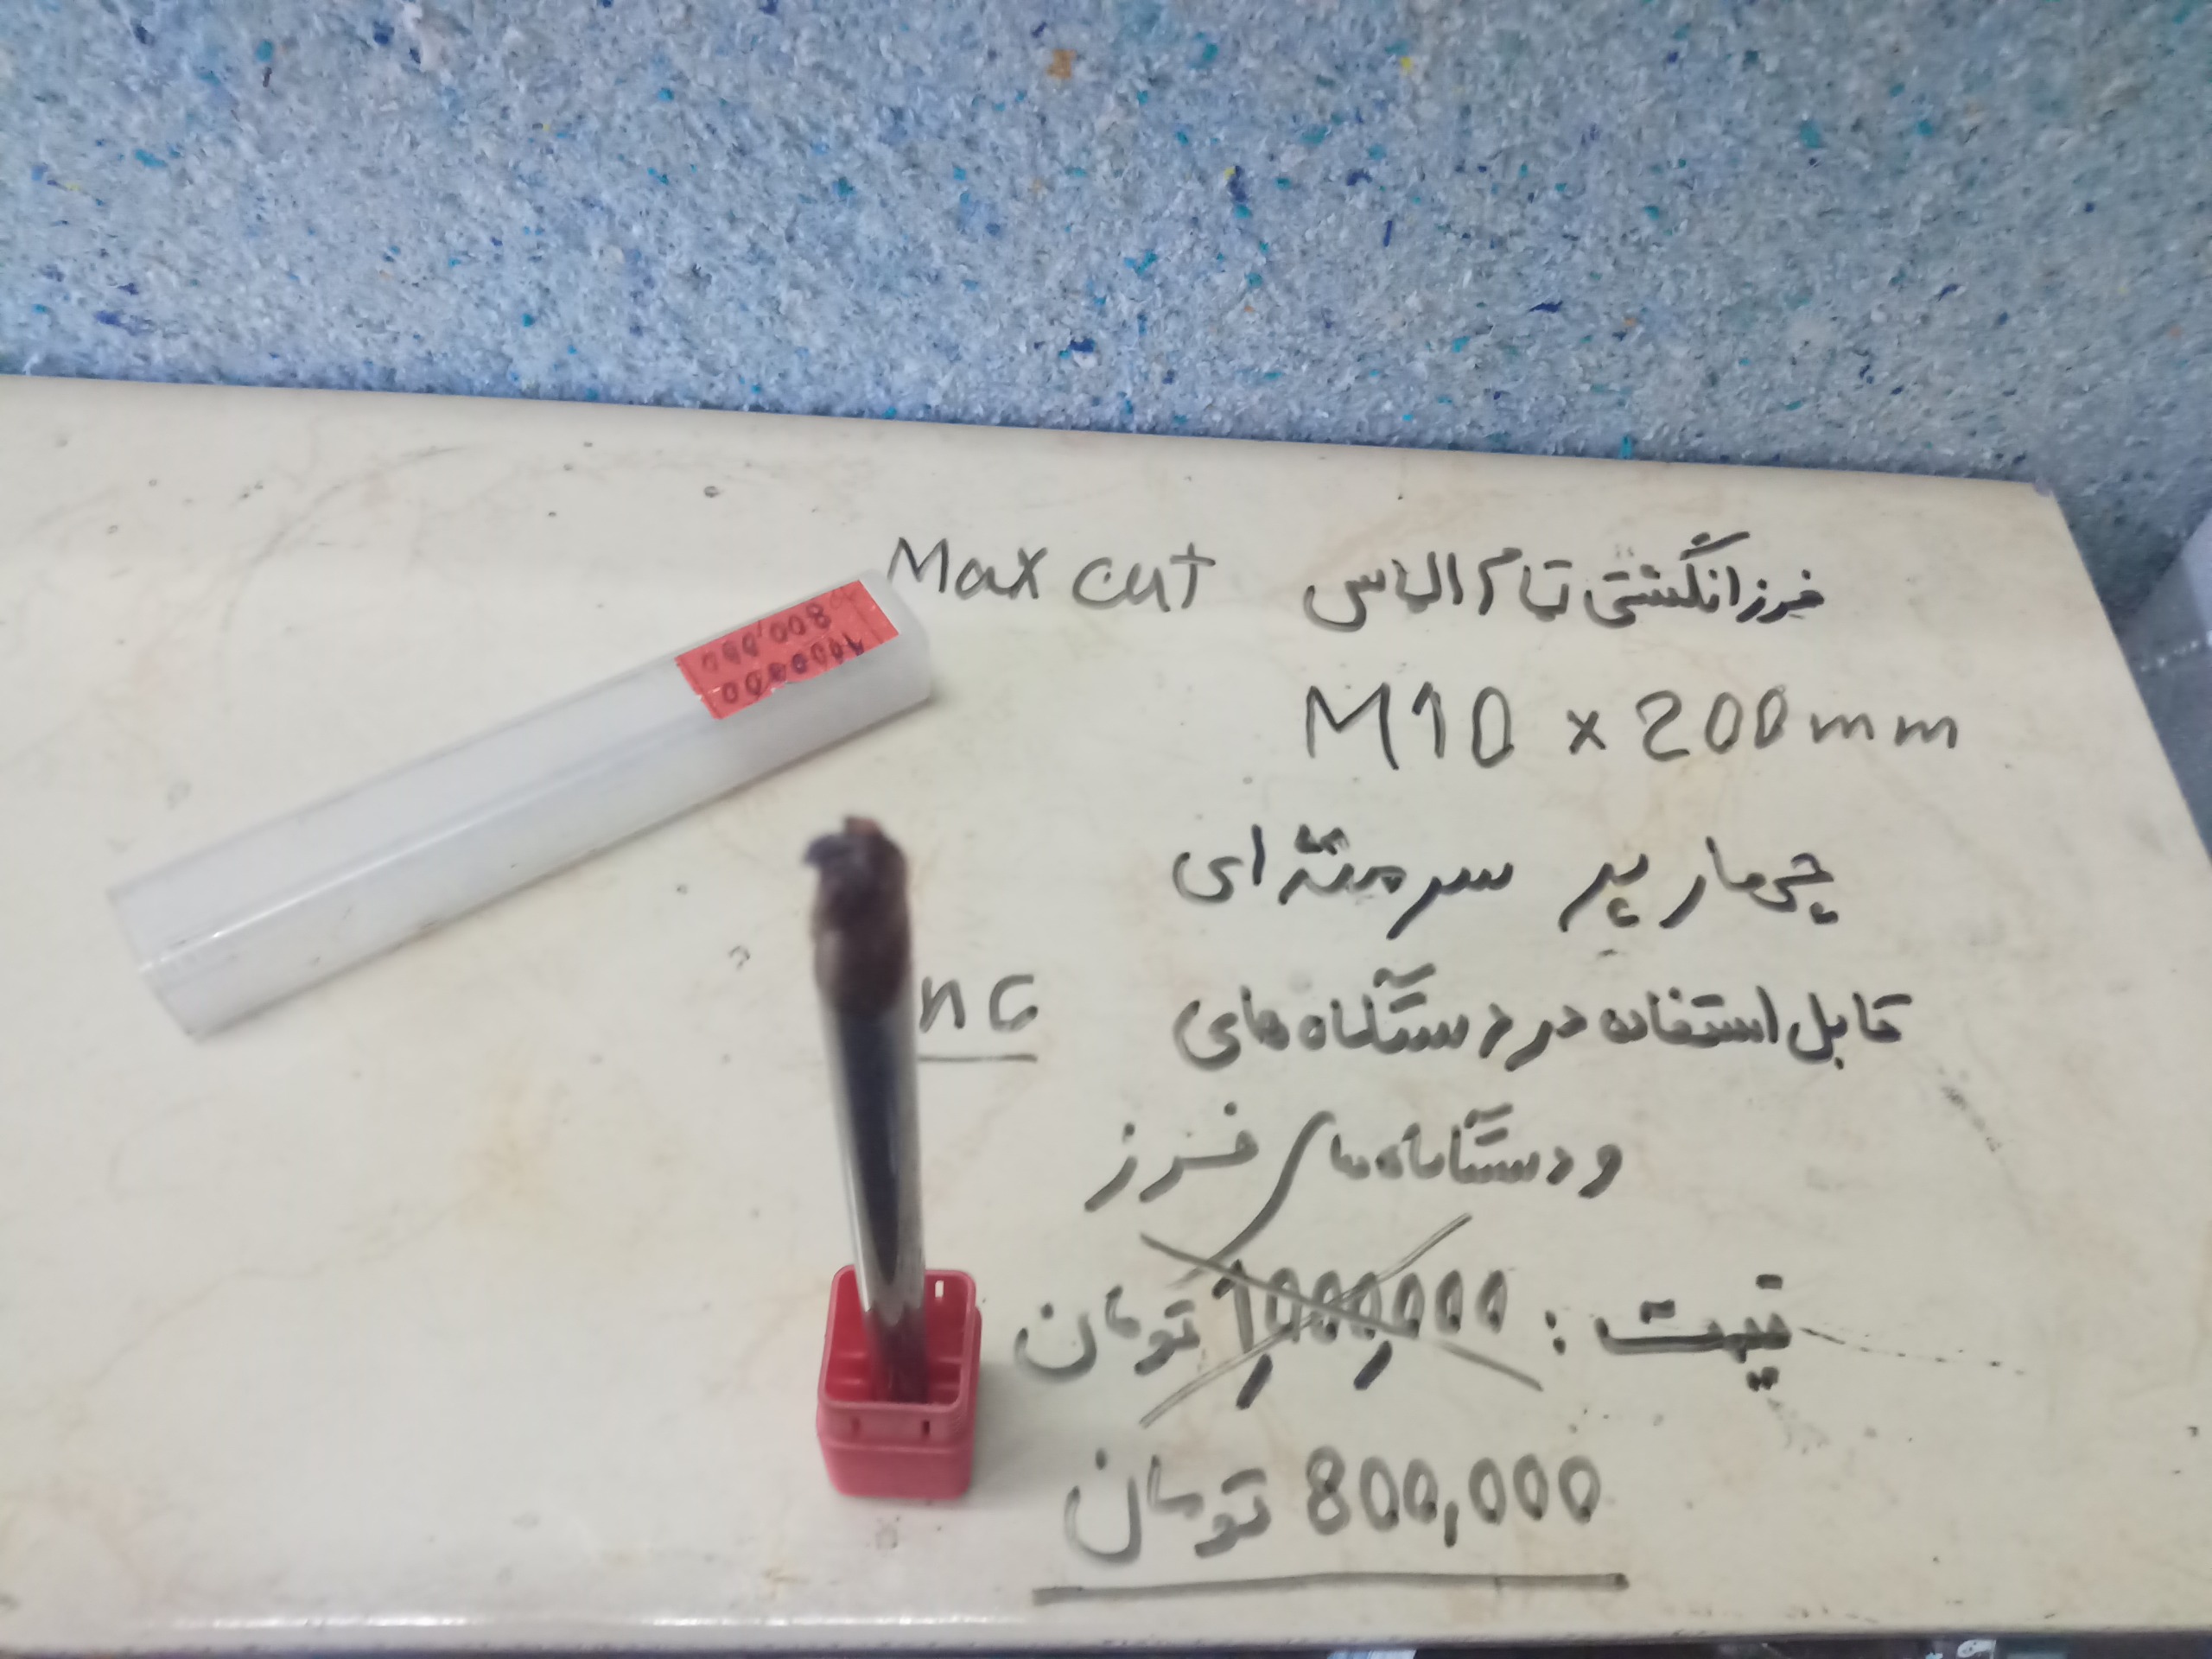 فرز انگشتی تمام الماس Max cut
M10 x 200mm
چهار پر سرمته ای
قابل استفاده در دستگاه های nc
و دستگاه های فرز
قیمت : 1,000,000 تومان
800,000 تومان
800,000
1000000